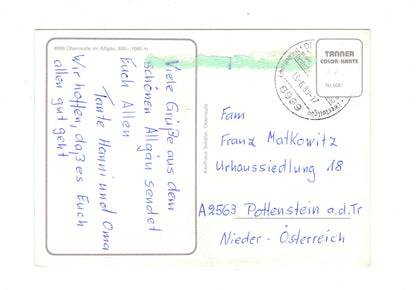 8999 Oberreute im Allgäu, 850-1040 m
Viele Grüße aus dem
schönen Allgäu sendet
Euch Allen
Tante Hanni und Oma
Wir hoffen, daß es Euch
allen gut geht
Kaufhaus Schäfler, Oberreute
TANNER
COLOR-KARTE
8999
Fam
Franz Matkowitz
Urhaussiedlung 18
A2563 Pottenstein a.d.Tr
Nieder-Österreich